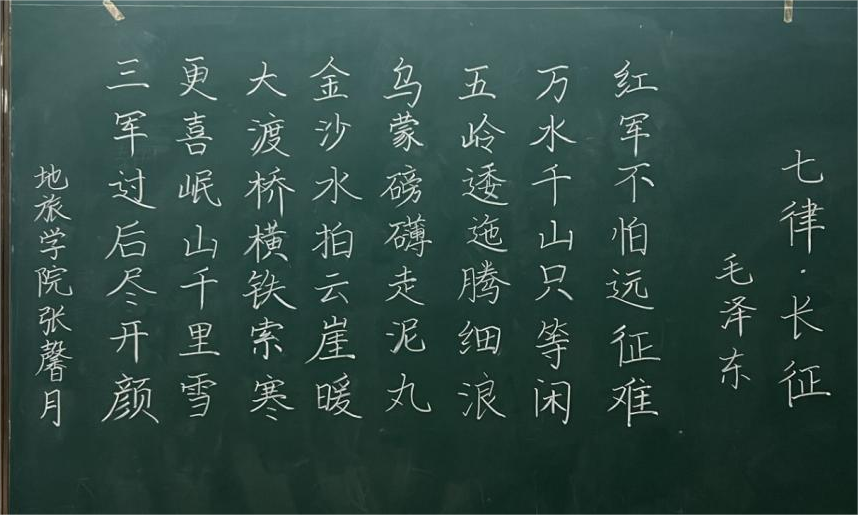 七律·长征
毛泽东
红军不怕远征难
万水千山只等闲
五岭逶迤腾细浪
乌蒙磅礴走泥丸
金沙水拍云崖暖
大渡桥横铁索寒
更喜岷山千里雪
三军过后尽开颜
地旅学院张馨月